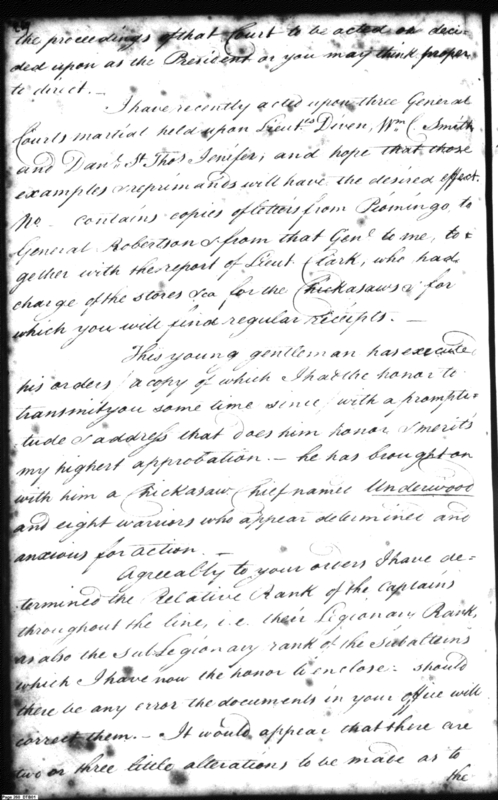 the proceedings of that Court to be acted on deci-
ded upon as the President or you may think proper
to direct. —
I have recently acted upon three General
Courts martial held upon Lieut.ts Diven, Wm. C. Smith
and Danl. St. Thos. Jenifer, and hope that those
examples & reprimands will have the desired effect.
No. contains copies of letters from Piomingo to
General Robertson & from that Genl. to me, to=
gether with the report of Lieut. Clark, who had
charge of the stores &ca for the Chickasaws & for
which you will find regular receipts. —
This young gentleman has executed
his orders (a copy of which I had the honor to
transmit you some time since) with a prompti=
tude & address that does him honor & merits
my highest approbation. — he has brought on
with him a Chickasaw Chief named Underwood
and eight warriors who appear determined and
anxious for action. —
Agreeably to your orders I have de=
termined the Relative Rank of the Captains
throughout the line, i.e. their Legionary Rank,
as also the Sub Legionary rank of the Subalterns
which I have now the honor to enclose: should
there be any error the documents in your office will
correct them. — It would appear that there are
two or three little alterations to be made as to
the